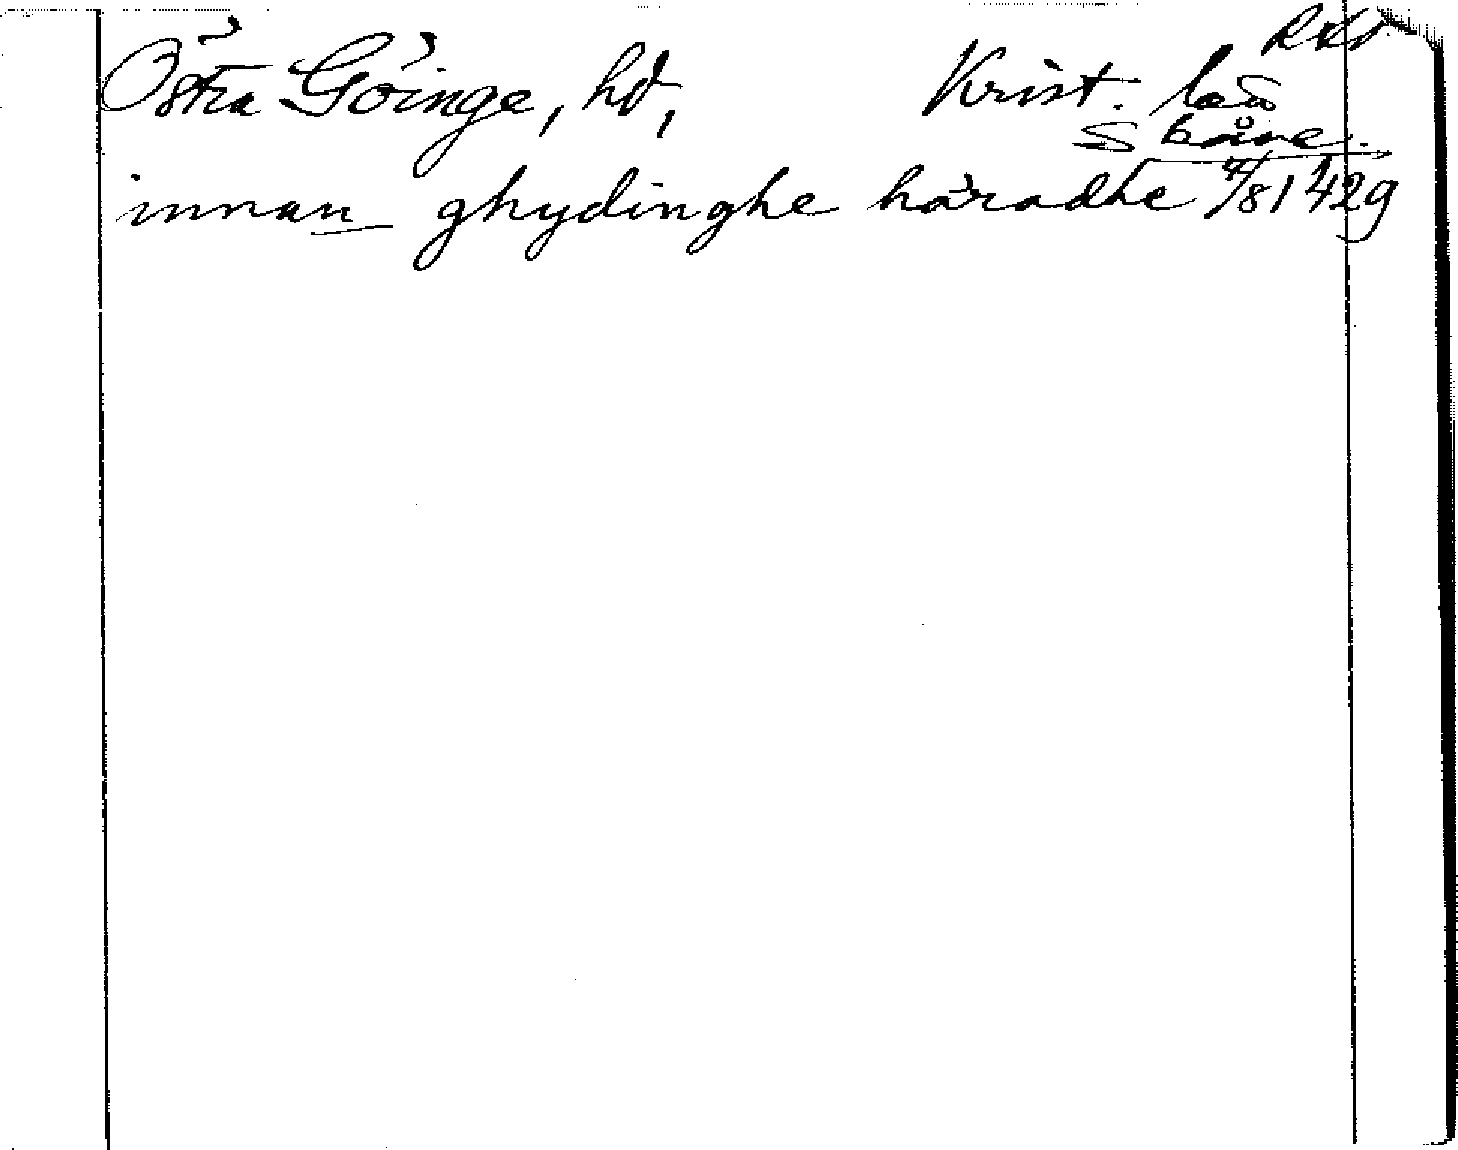 Östra Göinge, hd, Krist. län
Skåne.
innan ghydinghe häradhe 4/8 1429